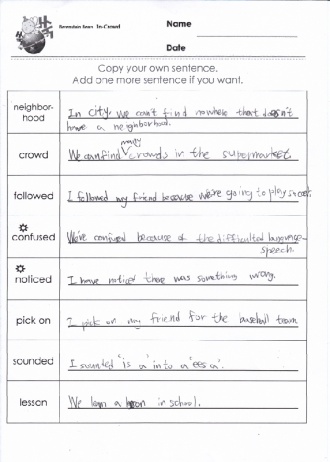 Berenstain Bears In-Crowd
Name
Date
Copy your own sentence.
Add one more sentence if you want.
neighbor-
hood
In city, we can't find nowhere that doesn't
have a neighborhood.
crowd
many
We can find crowds in the supermarket.
followed
I followed my friend because we're going to play
confused
We're confused because of the difficulted language
speech.
noticed
I have noticed there was something wrong.
pick on
I pick on my friend for the baseball team
sounded
I sounded 'is a' into a
lesson
We in school.